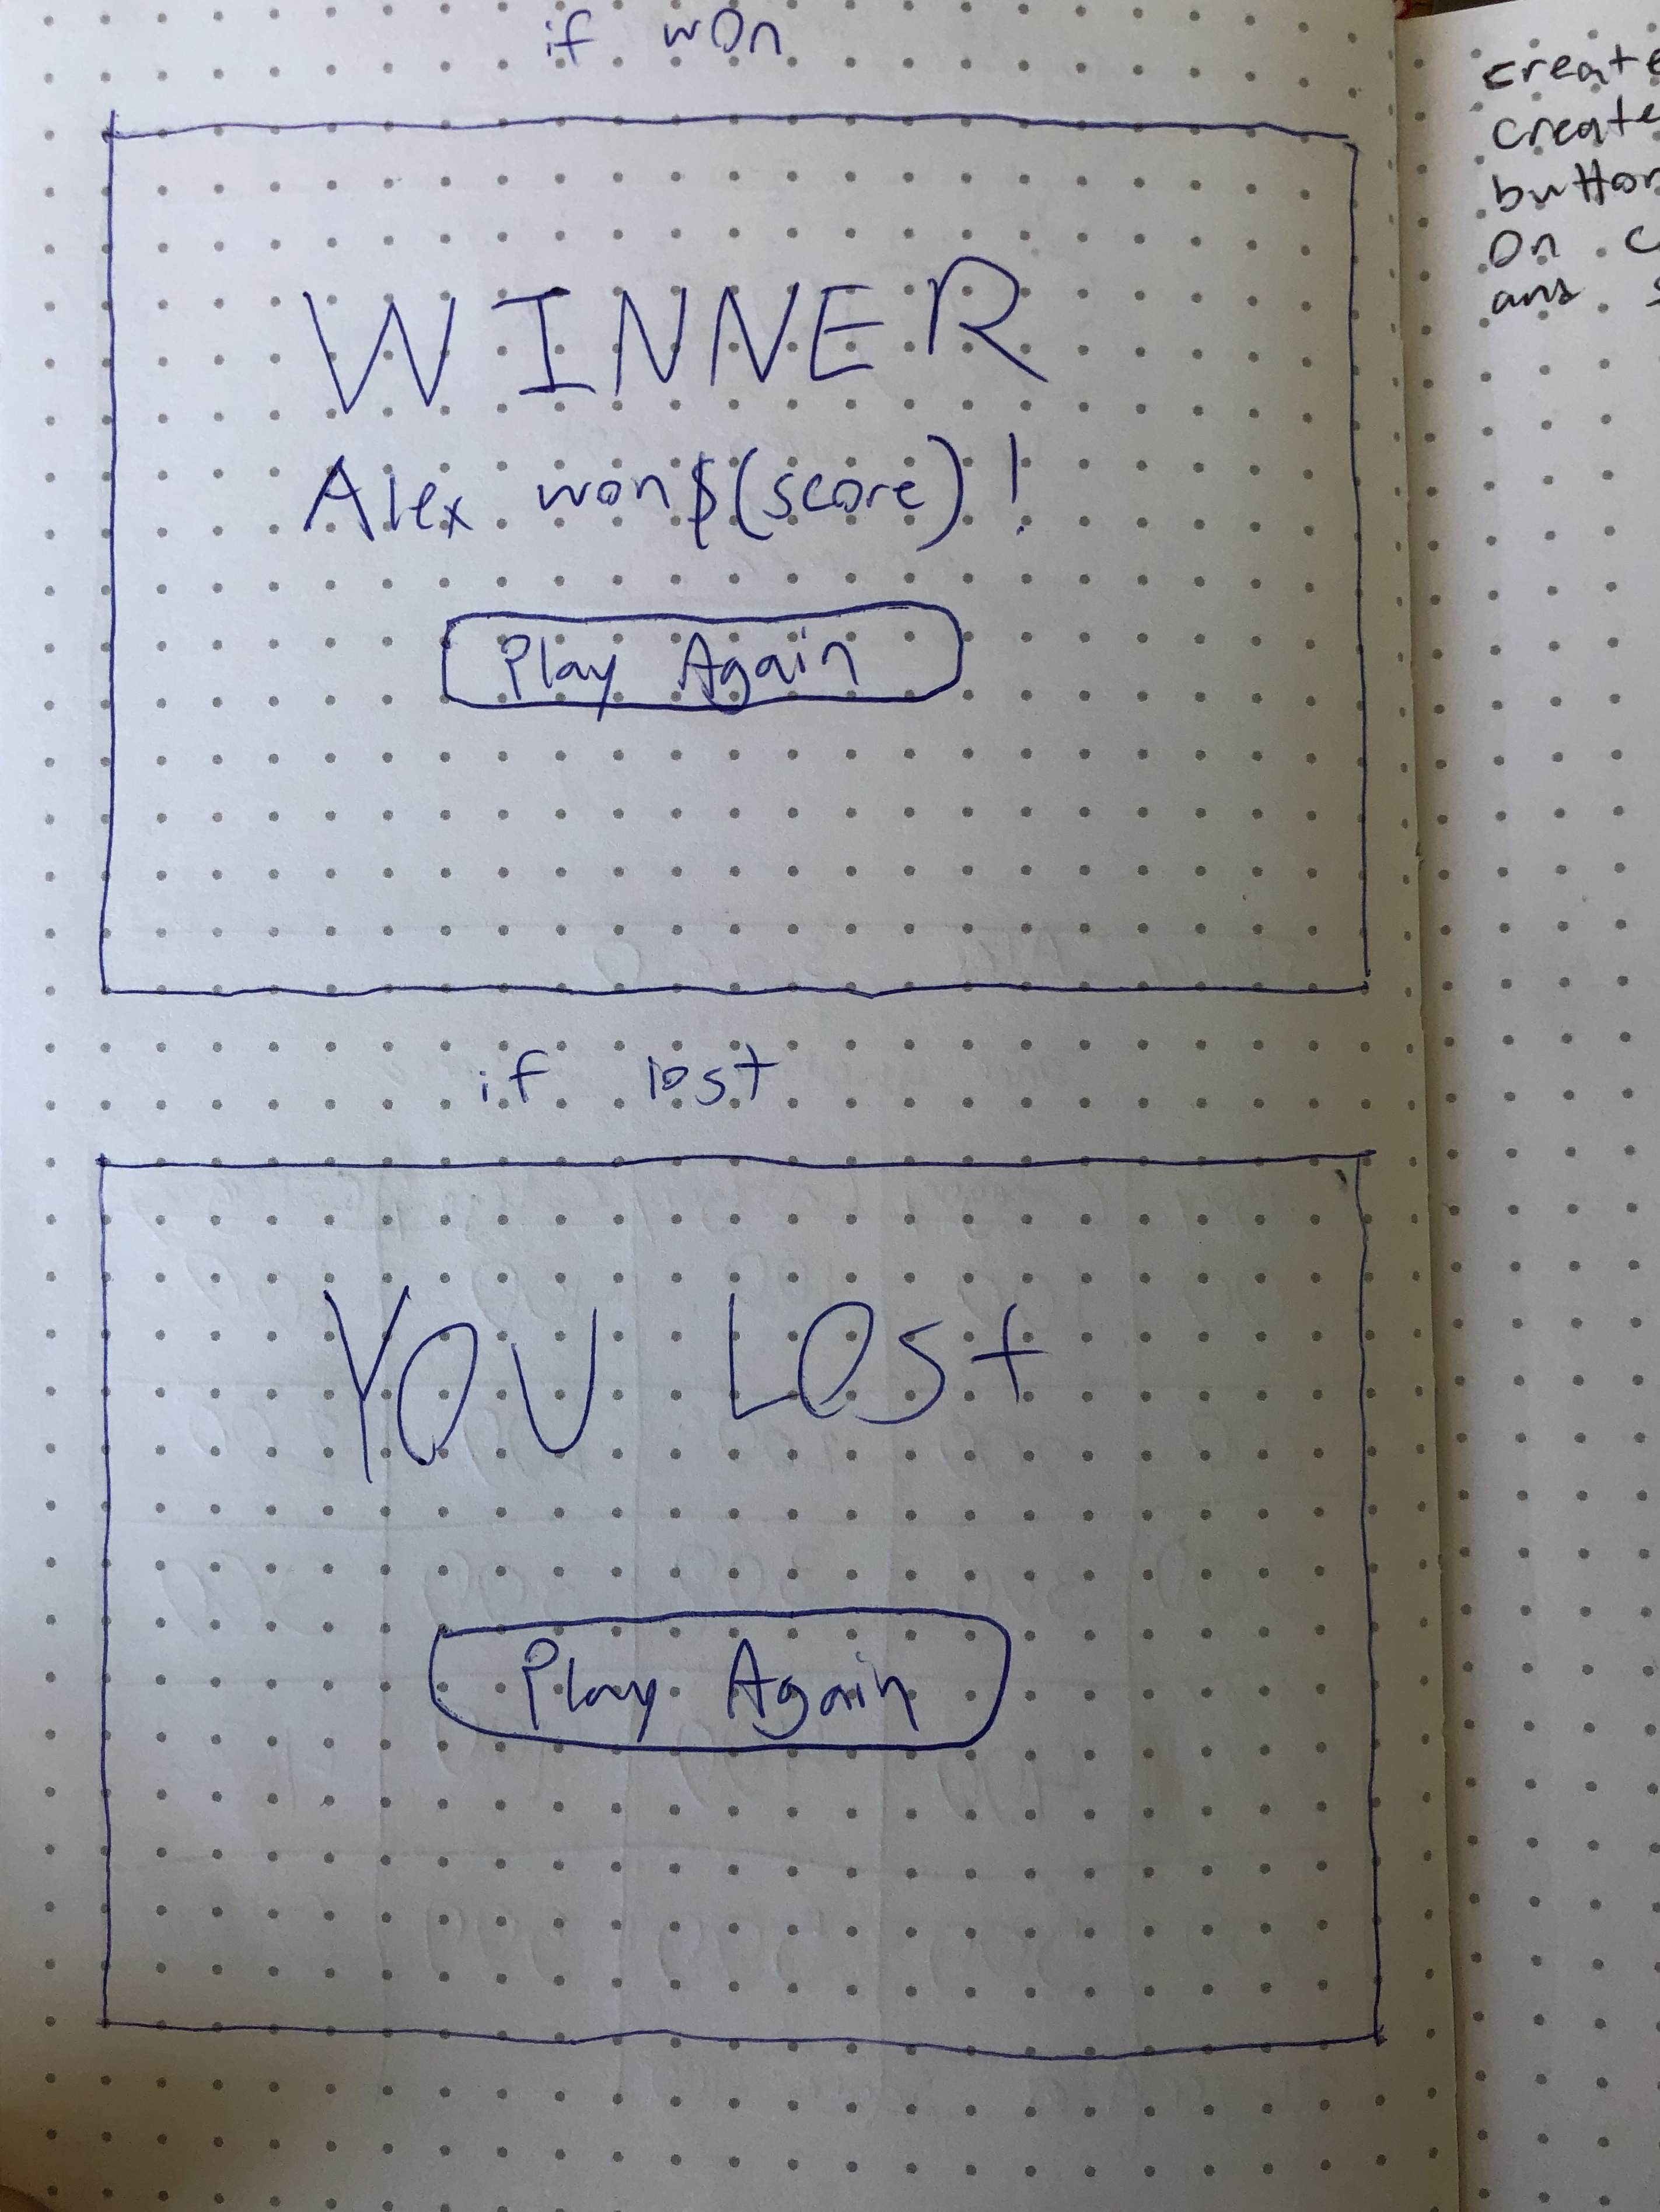 if won
WINNER
Alex won $(score)!
Play Again
if lost
YOU LOST
Play Again
create
create
button
On c
ans s